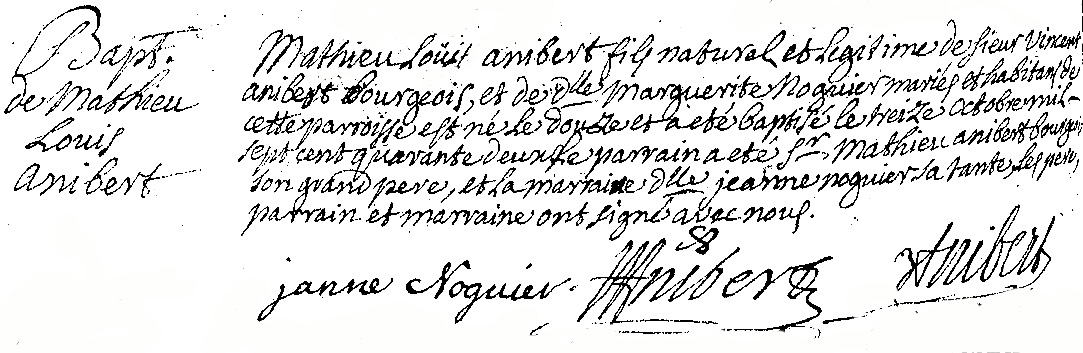 Bapt.
de Mathieu
Louis
Anibert
Mathieu Loüis anibert fils naturel et legitime de sieur Vincent
anibert bourgeois, et de dlle Marguerite Noguier mariés et habitans de
cette parroisse est né le douze et a eté baptisé le treize octobre mil-
sept cent quarante deux, le parrain a eté sr. Mathieu anibert bourgois
son grand pere, et la marraine dlle jeanne noguier sa tante les pere,
parrain et marraine ont signé avec nous.
janne Noguier. Anibert Anibert